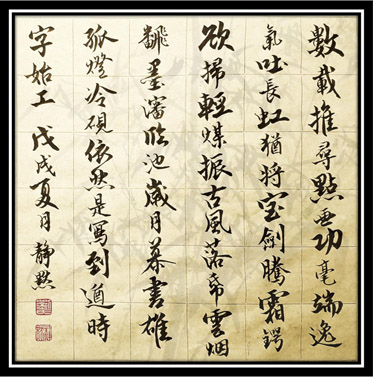 數載推尋點画功毫端逸
氣吐長虹猶將宝劍騰霜鍔
欲掃輕煤振古風落帋雲烟
飜墨瀋臨池歲月慕書雄
孤燈冷硯依然是寫到遒時
字始工 戊戌夏月 靜默